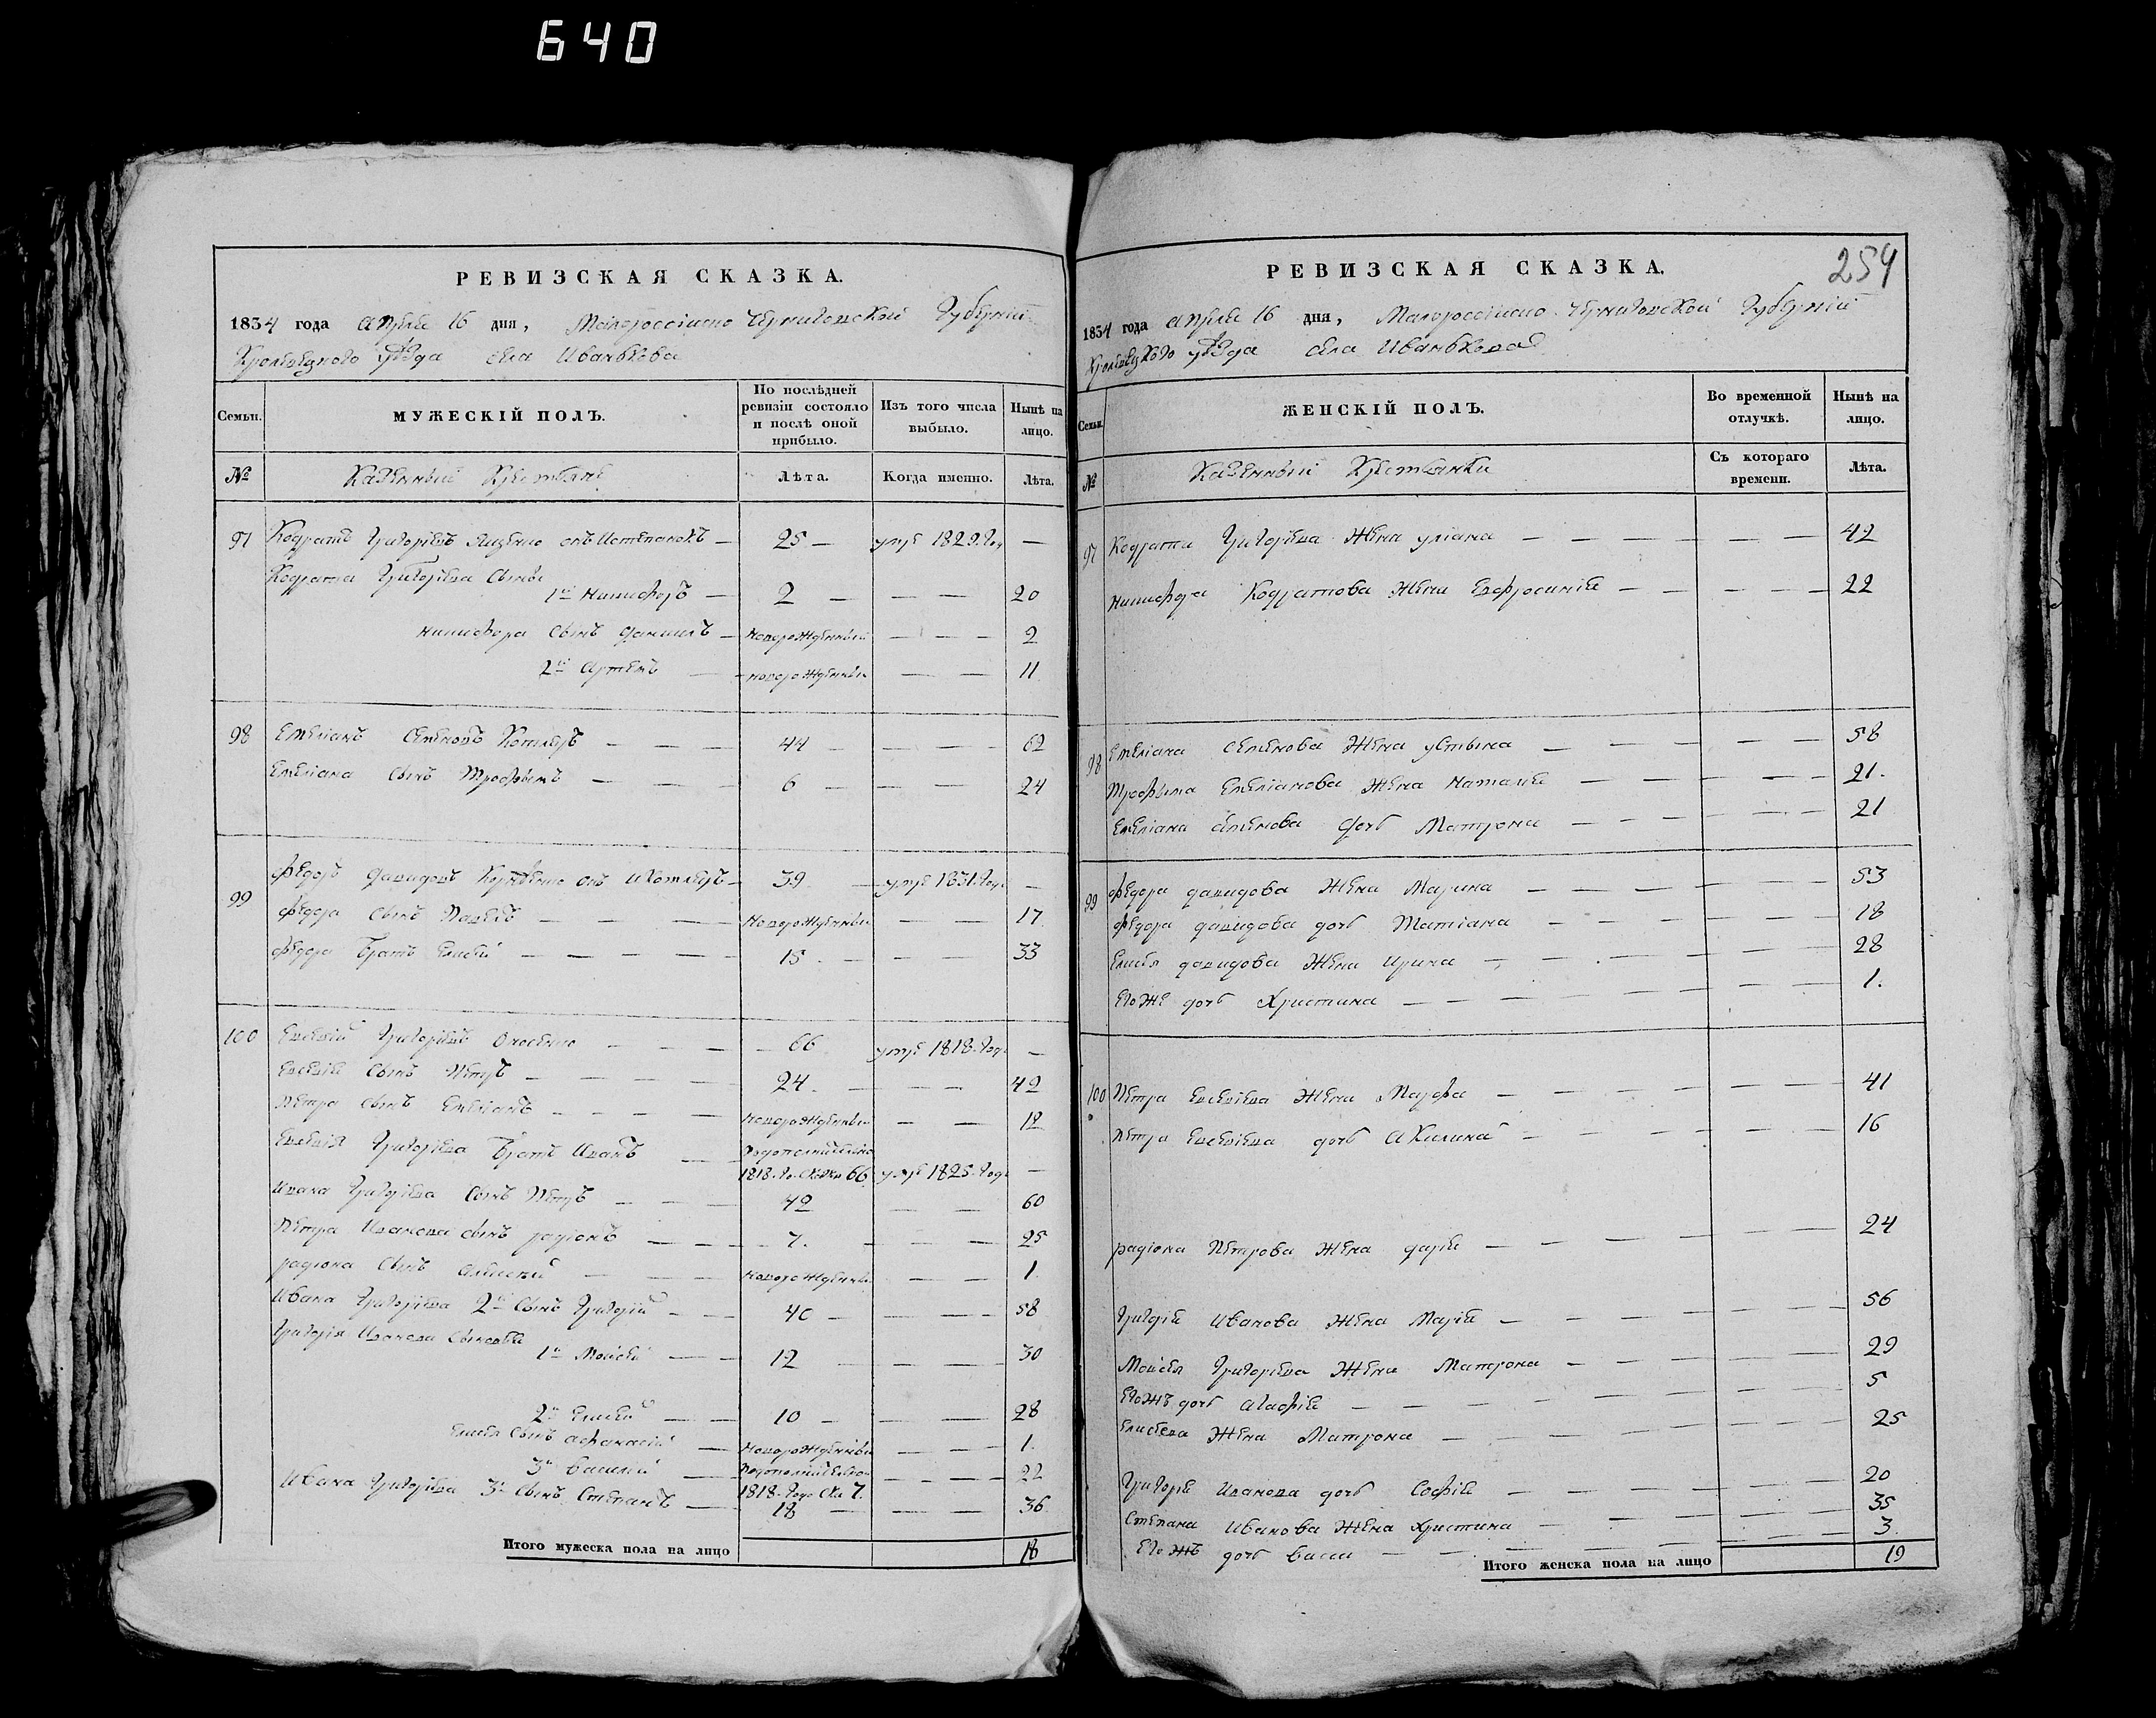 640
РЕВИЗСКАЯ СКАЗКА.
1834 года Апреля 16 дня, Малороссійско Черниговской Губерніи
Кролевецкого уѣзда села Иванькова
Семьи. МУЖЕСКІЙ ПОЛЪ. По послѣдней ревизіи состояло и послѣ оной прибыло. Изъ того числа выбыло. Нынѣ на лицо.
№ Казенный Крестьяне Лѣта. Когда именно. Лѣта.
97 Кодратъ Григоріевъ онъ 25 — умре 1829. Года —
Кодрата Григоріева сыны
1й Никифоръ — 2 — — — 20
Никифора сынъ Даниилъ — новорожденный — — — 2
2й Артемъ — новорожденный — — 11
98 Емеліанъ Семеновъ Котляръ — — — 44 — — — — 62
Емеліана сынъ Трофымъ — — — 6 — — — — 24
99 Федоръ Давидовъ онъ и Котляръ — 39 — умре 1831. Года —
Федора сынъ Павелъ — — — новорожденный — — — 17
Федора братъ Елисей — — — — 15 — — — — 33
100 Евсевій Григоріевъ — — — 66 умре 1818. Года —
Евсевія сынъ Петръ — — — — 24 — — — — 42
Петра сынъ Емеліанъ — — — — новорожденный — — 12
Евсевія Григоріева братъ Иванъ —
1818. Го. 66 умре 1825. Года —
Ивана Григоріева сынъ Петръ — — 42 — — 60
Петра Иванова сынъ Радіонъ — — — 7. — — — 25
Радіона сынъ Алексѣй — — — новорожденный — — — 1
Ивана Григоріева 2й сынъ Григорій — — 40 — — — — 58
Григорія Иванова сыновья
1й Мойсей — — 12 — — — 30
2й Елисей — — 10 — — — 28
Елисея сынъ Афанасій — новорожденный — — — 1.
3й Василій — — — — — 22
1818. Года 7.
Ивана Григоріева 3й сынъ Степанъ — 18 — — — 36.
Итого мужеска пола на лицо 18
254
РЕВИЗСКАЯ СКАЗКА.
1834 года Апреля 16 дня, Малороссійско Черниговской Губерніи
Кролевецкого уѣзда села Иванькова
Семьи. ЖЕНСКІЙ ПОЛЪ. Во временной отлучкѣ. Нынѣ на лицо.
№ Казенный Крестьянки Съ котораго времени. Лѣта.
97 Кодрата Григоріева жена Уліана — — — — — — — 42
Никифора Кодратова жена Евфросинія — — — — — 22
98 Емеліана Семенова жена Устына — — — — — — 58
Трофыма Емеліанова жена Наталія — — — — — — 21.
Емеліана Семенова дочь Матрона — — — — — — 21
99 Федора Давидова жена Марина — — — — — — — 53
Федора Давидова дочь Татіана — — — — — — 18
Елисея Давидова жена Ирина — — — — — 28
Его же дочь Христина — — — — — — — 1.
100 Петра Евсевіева жена Марфа — — — — — — 41
Петра Евсевіева дочь Акилина — — — — — — 16
Радіона Петрова жена Дарія — — — — — — 24
Григорія Иванова жена Марія — — — — — — 56
Мойсея Григоріева жена Матрона — — — — — 29
Его жъ дочь Агафія — — — — — — 5
Елисеева жена Матрона — — — — — — 25
Григорія Иванова дочь Софія — — — — — 20
Степана Иванова жена Христина — — — — — 35
Его жъ дочь — — — — — 3.
Итого женска пола на лицо 19